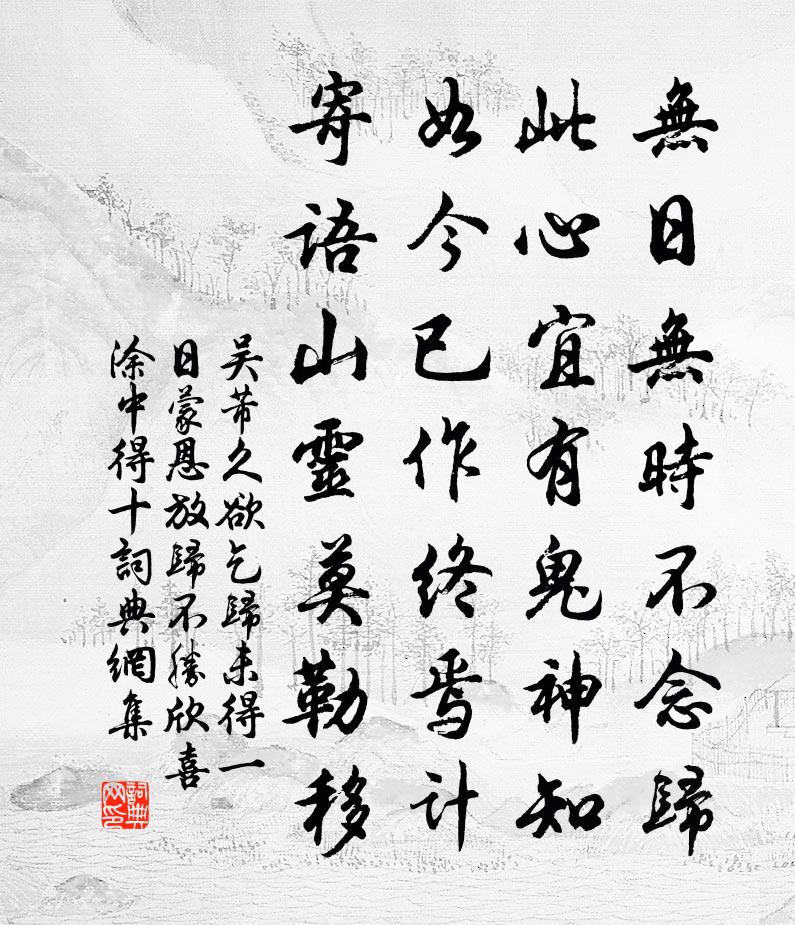 無日無時不念歸
此心宜有鬼神知
如今已作終焉計
寄語山靈莫勒移
吴芾久欲乞歸未得一
日蒙恩放歸不勝欣喜
涂中得十詞典網集
詞典
网印